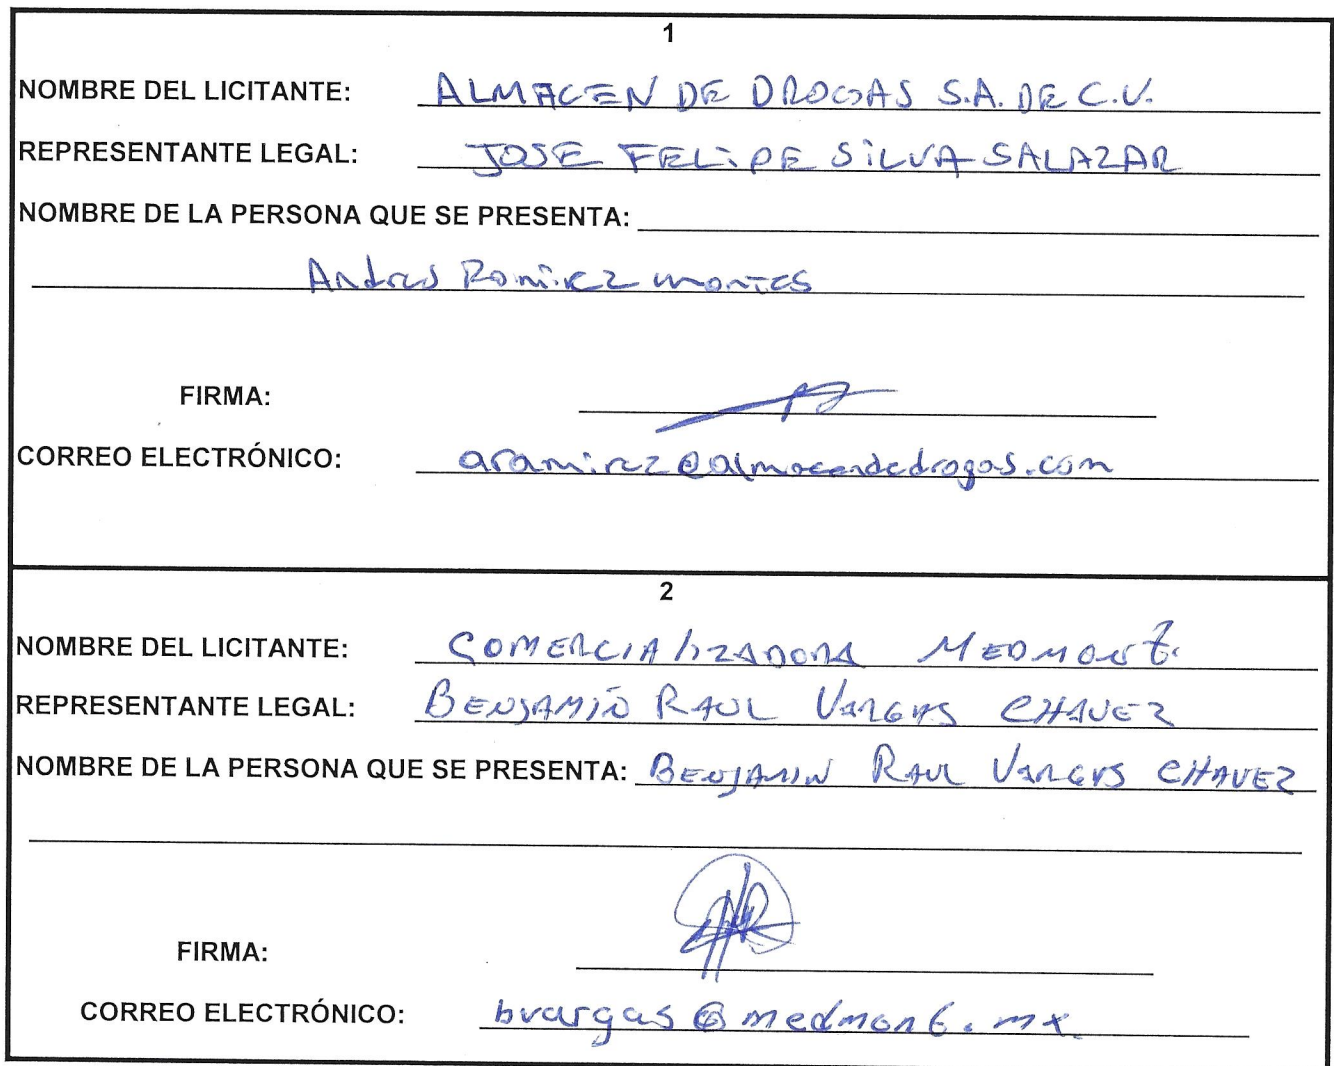 1
NOMBRE DEL LICITANTE: ALMACEN DE DROGAS S.A. DE C.V.
REPRESENTANTE LEGAL: JOSE FELIPE SILVA SALAZAR
NOMBRE DE LA PERSONA QUE SE PRESENTA:
Andres Ramirez montes
FIRMA:
CORREO ELECTRÓNICO: aramirez@almacendedrogas.com
2
NOMBRE DEL LICITANTE: COMERCIALIZADORA
REPRESENTANTE LEGAL: BENJAMIN RAUL VARGAS CHAVEZ
NOMBRE DE LA PERSONA QUE SE PRESENTA: BENJAMIN RAUL VARGAS CHAVEZ
FIRMA:
CORREO ELECTRÓNICO: